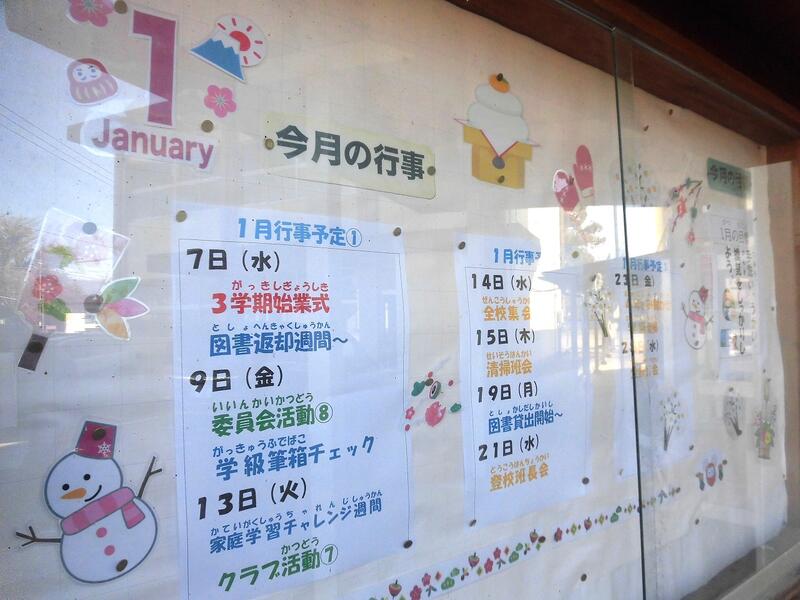 1
January
今月の行事
1月行事予定①
7日（水）
がっきしぎょうしき
3学期始業式
としょへんきゃくしゅうかん
図書返却週間～
9日（金）
いいんかいかつどう
委員会活動⑧
がっきゅうふでばこ
学級筆箱チェック
13日（火）
かていがくしゅうちゃれんじしゅうかん
家庭学習チャレンジ週間
かつどう
クラブ活動⑦
1月行事
14日（水）
ぜんこうしゅうかい
全校集会
15日（木）
せいそうはんかい
清掃班会
19日（月）
としょかしだしかいし
図書貸出開始～
21日（水）
とうこうはんちょうかい
登校班長会
月行事予定
23日（金）
今月の
1月の